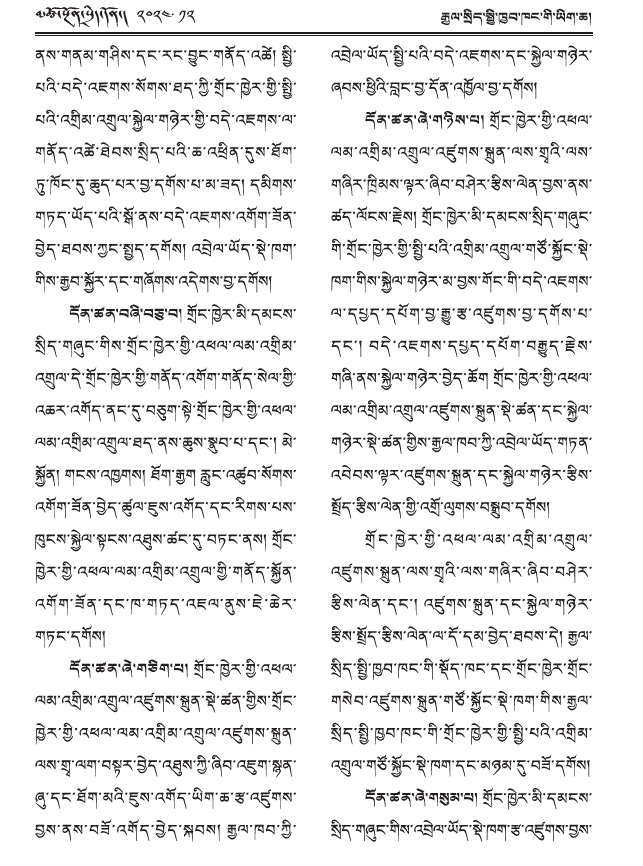 མཚོ་སྔོན་ཉིན་རེ། ༢༠༢༤.༡༢
རྒྱལ་སྲིད་སྤྱི་ཁྱབ་ཁང་གི་ཡིག་ཆ།
ནས་གནམ་གཤིས་དང་རང་བྱུང་གནོད་འཚེ། སྤྱི་
པའི་བདེ་འཇགས་སོགས་ཐད་ཀྱི་གྲོང་ཁྱེར་གྱི་སྤྱི་
པའི་འགྲིམ་འགྲུལ་སྐྱེལ་གཉེར་གྱི་བདེ་འཇགས་ལ་
གནོད་འཚེ་ཐེབས་སྲིད་པའི་ཆ་འཕྲིན་དུས་ཐོག་
ཏུ་ཁོང་དུ་ཆུད་པར་བྱ་དགོས་པ་མ་ཟད། དམིགས་
གཏད་ཡོད་པའི་སྒོ་ནས་བདེ་འཇགས་འགོག་ཟོན་
བྱེད་ཐབས་ཀྱང་སྤྱད་དགོས། འབྲེལ་ཡོད་སྡེ་ཁག་
གིས་རྒྱབ་སྐྱོར་དང་གཞོགས་འདེགས་བྱ་དགོས།
དོན་ཚན་བཞི་བཅུ་བ། གྲོང་ཁྱེར་མི་དམངས་
སྲིད་གཞུང་གིས་གྲོང་ཁྱེར་གྱི་འཕལ་ལམ་འགྲིམ་
འགྲུལ་དེ་གྲོང་ཁྱེར་གྱི་གནོད་འགོག་གནོད་སེལ་གྱི་
འཆར་འགོད་ནང་དུ་བཅུག་སྟེ་གྲོང་ཁྱེར་གྱི་འཕལ་
ལམ་འགྲིམ་འགྲུལ་ཐད་ནས་ཆུས་སྣུབ་པ་དང་། མེ་
སྐྱོན། གངས་འཁྱགས། ཐོག་རྒྱག རླུང་འཚུབ་སོགས་
འགོག་ཟོན་བྱེད་ཚུལ་ཇུས་འགོད་དང་རིགས་པས་
ཁུངས་སྐྱེལ་སྟངས་འཐུས་ཚང་དུ་བཏང་ནས། གྲོང་
ཁྱེར་གྱི་འཕལ་ལམ་འགྲིམ་འགྲུལ་གྱི་གནོད་སྐྱོན་
འགོག་ཟོན་དང་ཁ་གཏད་འཇལ་ནུས་ཇེ་ཆེར་
གཏང་དགོས།
དོན་ཚན་ཞེ་གཅིག་པ། གྲོང་ཁྱེར་གྱི་འཕལ་
ལམ་འགྲིམ་འགྲུལ་འཛུགས་སྐྲུན་སྡེ་ཚན་གྱིས་གྲོང་
ཁྱེར་གྱི་འཕལ་ལམ་འགྲིམ་འགྲུལ་འཛུགས་སྐྲུན་
ལས་གྲྭ་ལག་བསྟར་བྱེད་འཐུས་ཀྱི་ཞིབ་འཇུག་སྙན་
ཞུ་དང་ཐོག་མའི་ཇུས་འགོད་ཡིག་ཆ་རྩ་འཛུགས་
བྱས་ནས་བཟོ་འགོད་བྱེད་སྐབས། རྒྱལ་ཁབ་ཀྱི་
འབྲེལ་ཡོད་སྤྱི་པའི་བདེ་འཇགས་དང་སྐྱེལ་གཉེར་
ཞབས་ཕྱིའི་བླང་བྱ་དོན་འཁྱོལ་བྱ་དགོས།
དོན་ཚན་ཞེ་གཉིས་པ། གྲོང་ཁྱེར་གྱི་འཕལ་
ལམ་འགྲིམ་འགྲུལ་འཛུགས་སྐྲུན་ལས་གྲྭའི་ལས་
གཞིར་ཁྲིམས་ལྟར་ཞིབ་བཤེར་རྩིས་ལེན་བྱས་ནས་
ཚད་ལོངས་རྗེས། གྲོང་ཁྱེར་མི་དམངས་སྲིད་གཞུང་
གི་གྲོང་ཁྱེར་གྱི་སྤྱི་པའི་འགྲིམ་འགྲུལ་གཙོ་སྐྱོང་སྡེ་
ཁག་གིས་སྐྱེལ་གཉེར་མ་བྱས་གོང་གི་བདེ་འཇགས་
ལ་དཔྱད་དཔོག་བྱ་རྒྱུ་རྩ་འཛུགས་བྱ་དགོས་པ་
དང་། བདེ་འཇགས་དཔྱད་དཔོག་བརྒྱུད་རྗེས་
གཞི་ནས་སྐྱེལ་གཉེར་བྱེད་ཆོག གྲོང་ཁྱེར་གྱི་འཕལ་
ལམ་འགྲིམ་འགྲུལ་འཛུགས་སྐྲུན་སྡེ་ཚན་དང་སྐྱེལ་
གཉེར་སྡེ་ཚན་གྱིས་རྒྱལ་ཁབ་ཀྱི་འབྲེལ་ཡོད་གཏན་
འབེབས་ལྟར་འཛུགས་སྐྲུན་དང་སྐྱེལ་གཉེར་རྩིས་
སྤྲོད་རྩིས་ལེན་གྱི་འགྲོ་ལུགས་བསྒྲུབ་དགོས།
གྲོང་ཁྱེར་གྱི་འཕལ་ལམ་འགྲིམ་འགྲུལ་
འཛུགས་སྐྲུན་ལས་གྲྭའི་ལས་གཞིར་ཞིབ་བཤེར་
རྩིས་ལེན་དང་། འཛུགས་སྐྲུན་དང་སྐྱེལ་གཉེར་
རྩིས་སྤྲོད་རྩིས་ལེན་ལ་དོ་དམ་བྱེད་ཐབས་དེ། རྒྱལ་
སྲིད་སྤྱི་ཁྱབ་ཁང་གི་སྡོད་ཁང་དང་གྲོང་ཁྱེར་གྲོང་
གསེབ་འཛུགས་སྐྲུན་གཙོ་སྐྱོང་སྡེ་ཁག་གིས་རྒྱལ་
སྲིད་སྤྱི་ཁྱབ་ཁང་གི་གྲོང་ཁྱེར་གྱི་སྤྱི་པའི་འགྲིམ་
འགྲུལ་གཙོ་སྐྱོང་སྡེ་ཁག་དང་མཉམ་དུ་བཟོ་དགོས།
དོན་ཚན་ཞེ་གསུམ་པ། གྲོང་ཁྱེར་མི་དམངས་
སྲིད་གཞུང་གིས་འབྲེལ་ཡོད་སྡེ་ཁག་རྩ་འཛུགས་བྱས་